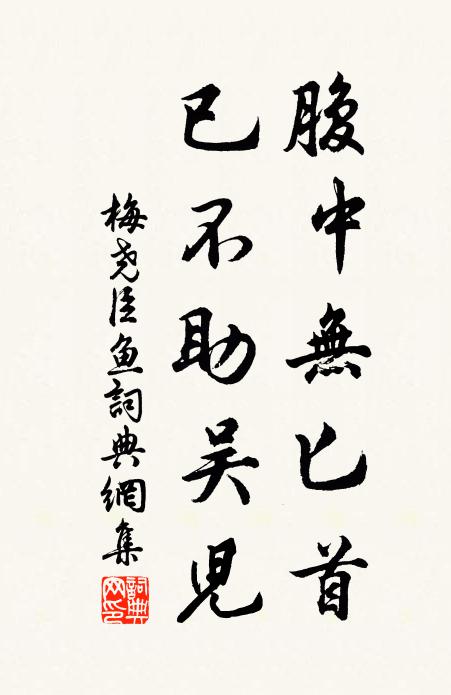 腹中無匕首
已不助吴兒
梅尧臣鱼詞典網集
詞典網印